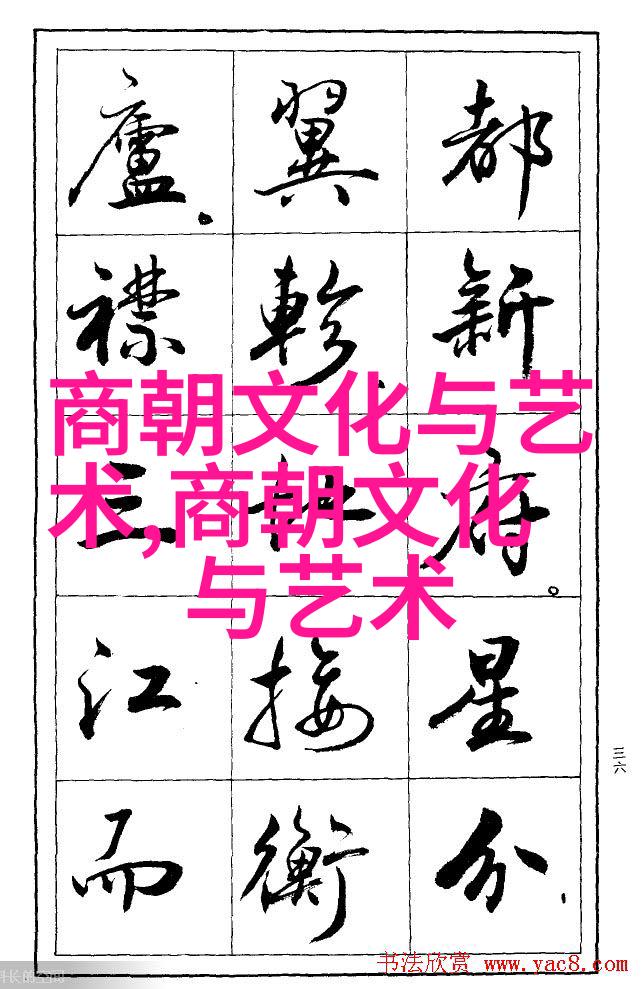 都新府。星分、
翼軫、地接衡
廬。襟三江而
商朝文化与艺
术,商朝文化
与艺术
三六
长的空间
书法欣赏 www.yac8.com